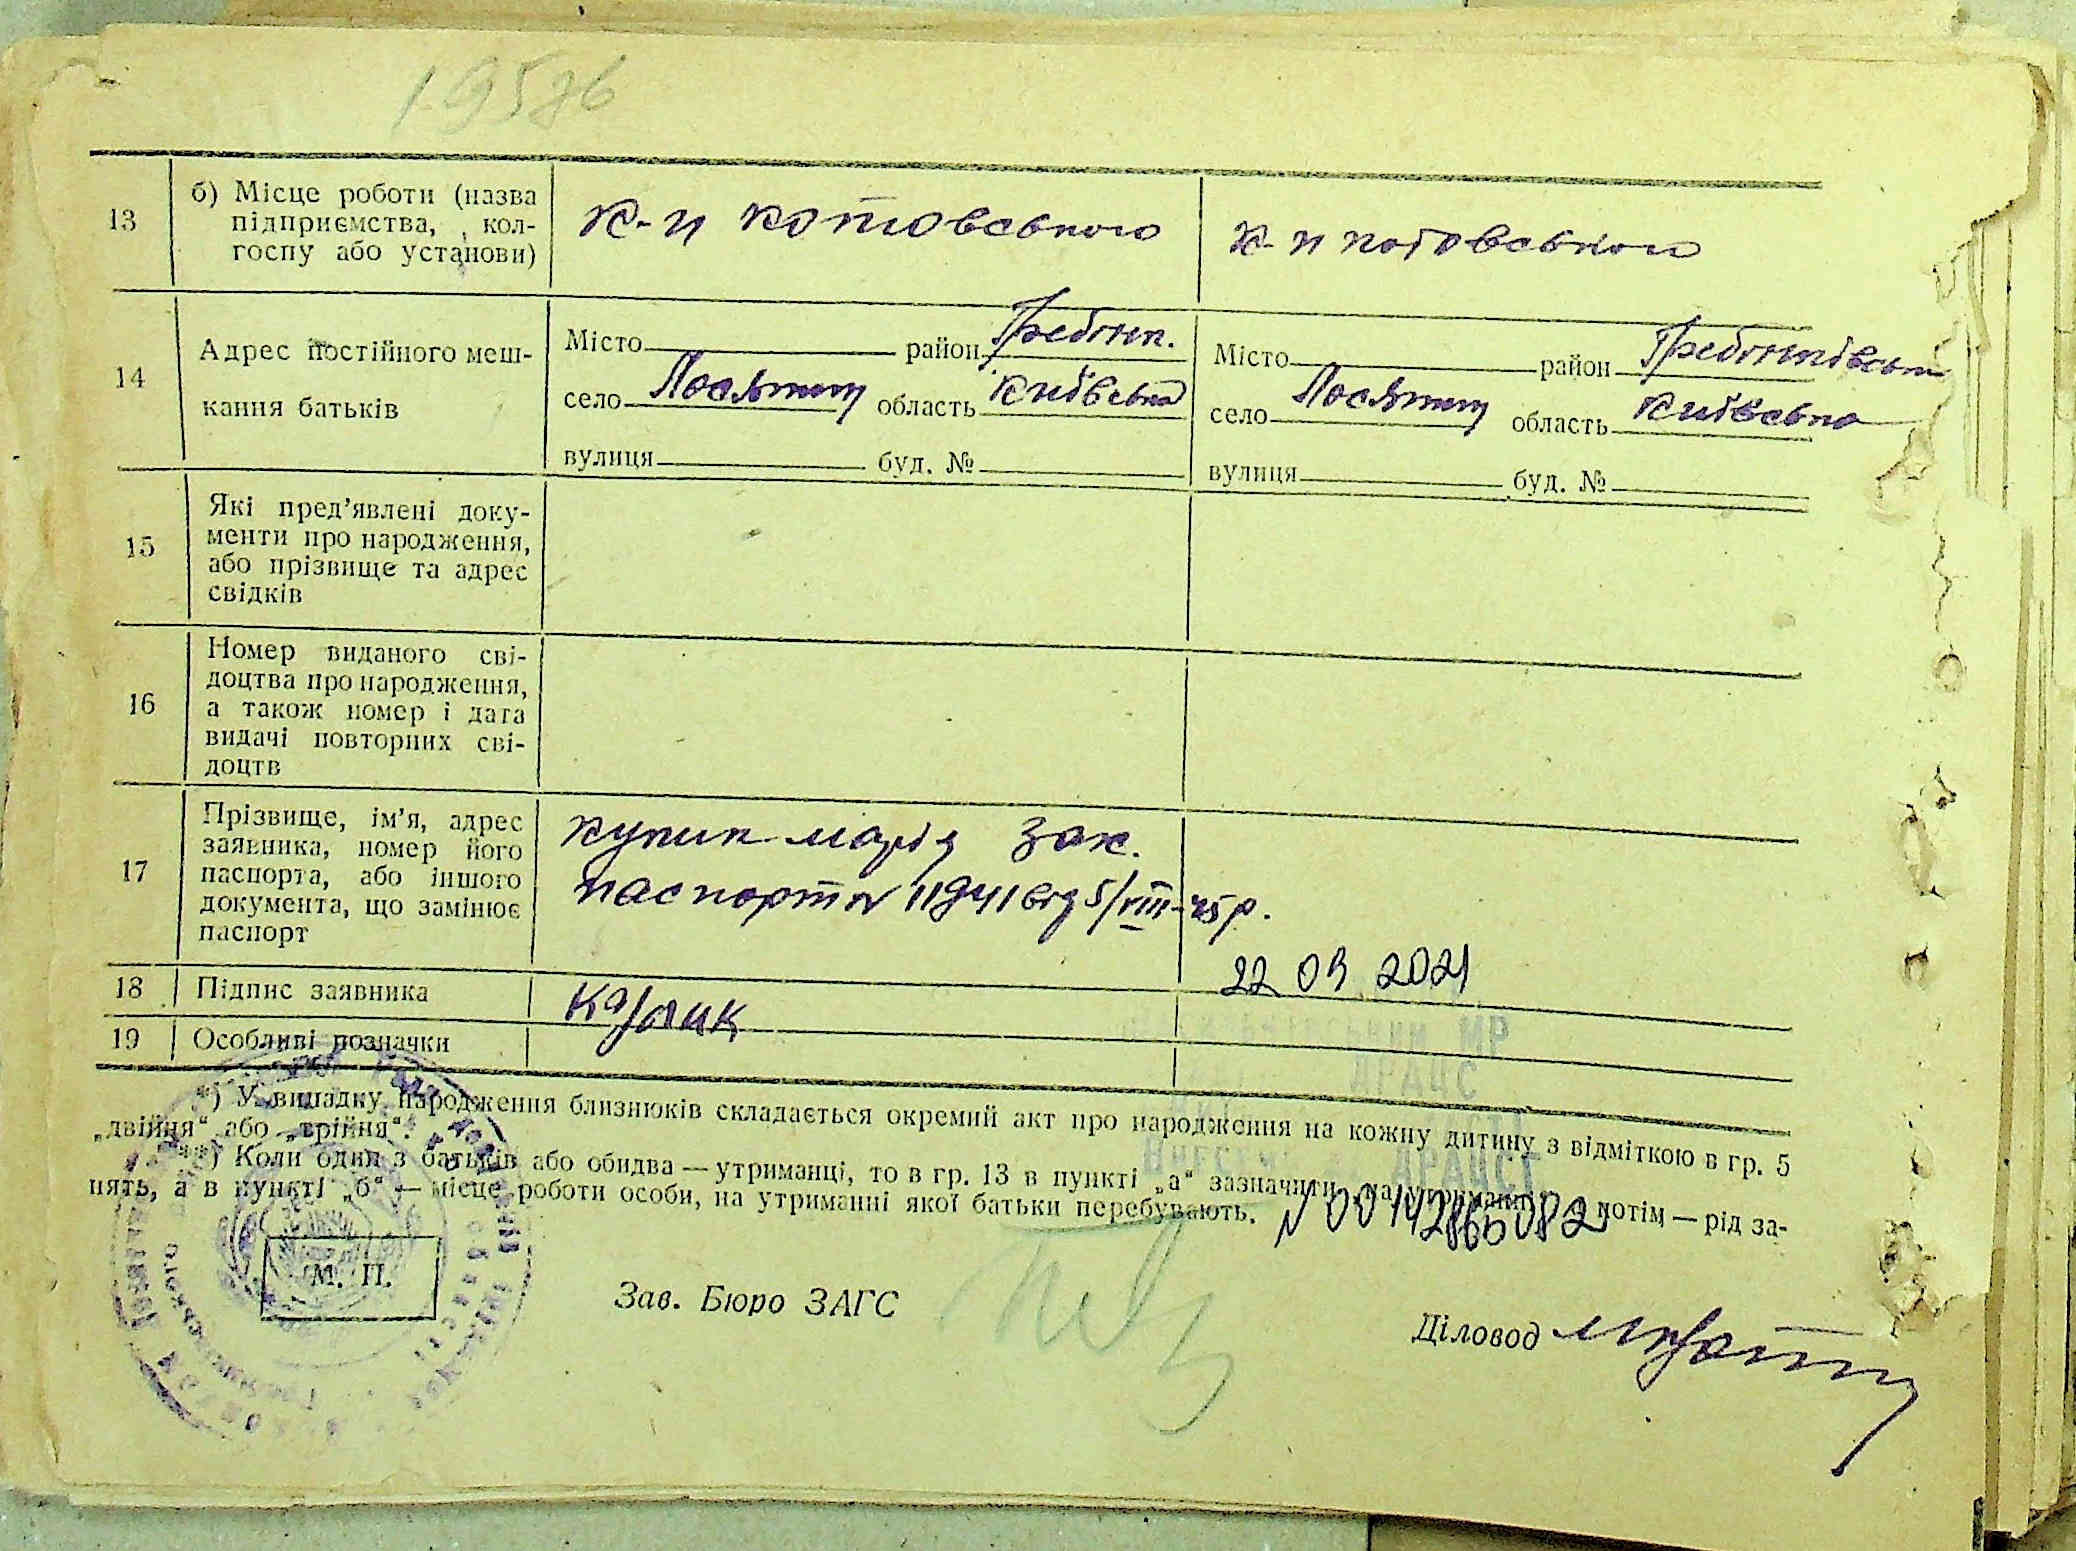 19576
13
б) Місце роботи (назва
підприємства, кол-
госпу або установи)
к-п котовського
к-п котовського
14
Адрес постійного меш-
кання батьків
Місто район Гребінк.
село Лосятин область Київська
вулиця буд. №
Місто район Гребінківськ
село Лосятин область Київська
вулиця буд. №
15
Які пред'явлені доку-
менти про народження,
або прізвище та адрес
свідків
16
Номер виданого сві-
доцтва про народження,
а також номер і дата
видачі повторних сві-
доцтв
17
Прізвище, ім'я, адрес
заявника, номер його
паспорта, або іншого
документа, що замінює
паспорт
Кулик Марія Зах.
паспорт № 11941 від 5/VIII-45р.
18
Підпис заявника
22 09 2021
19
Особливі позначки
МР
ДРАЦС
*) У випадку народження близнюків складається окремий акт про народження на кожну дитину з відміткою в гр. 5
„двійня" або „трійня".
**) Коли один з батьків або обидва — утриманці, то в гр. 13 в пункті „а" зазначити „на утриманні", а потім — рід за-
нять, а в пункті „б" — місце роботи особи, на утриманні якої батьки перебувають.
ДРАЦСГ
N 00142865082
М. П.
Зав. Бюро ЗАГС
Діловод